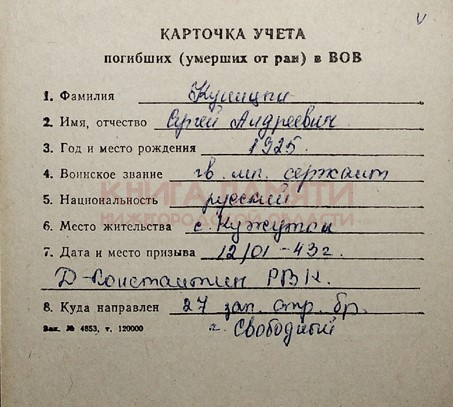 КАРТОЧКА УЧЕТА
погибших (умерших от ран) в ВОВ
1. Фамилия Куницын
2. Имя, отчество Сергей Андреевич
3. Год и место рождения 1925.
4. Воинское звание гв. мл. сержант
КНИГА ПАМЯТИ
5. Национальность русский
НИЖЕГОРОДСКОЙ ОБЛАСТИ
6. Место жительства с. Кужутки
7. Дата и место призыва 12/01-43г.
Д-Константин РВК.
8. Куда направлен 27 зап. стр. бр.
Зак. № 4853, т. 120000 г. Свободный